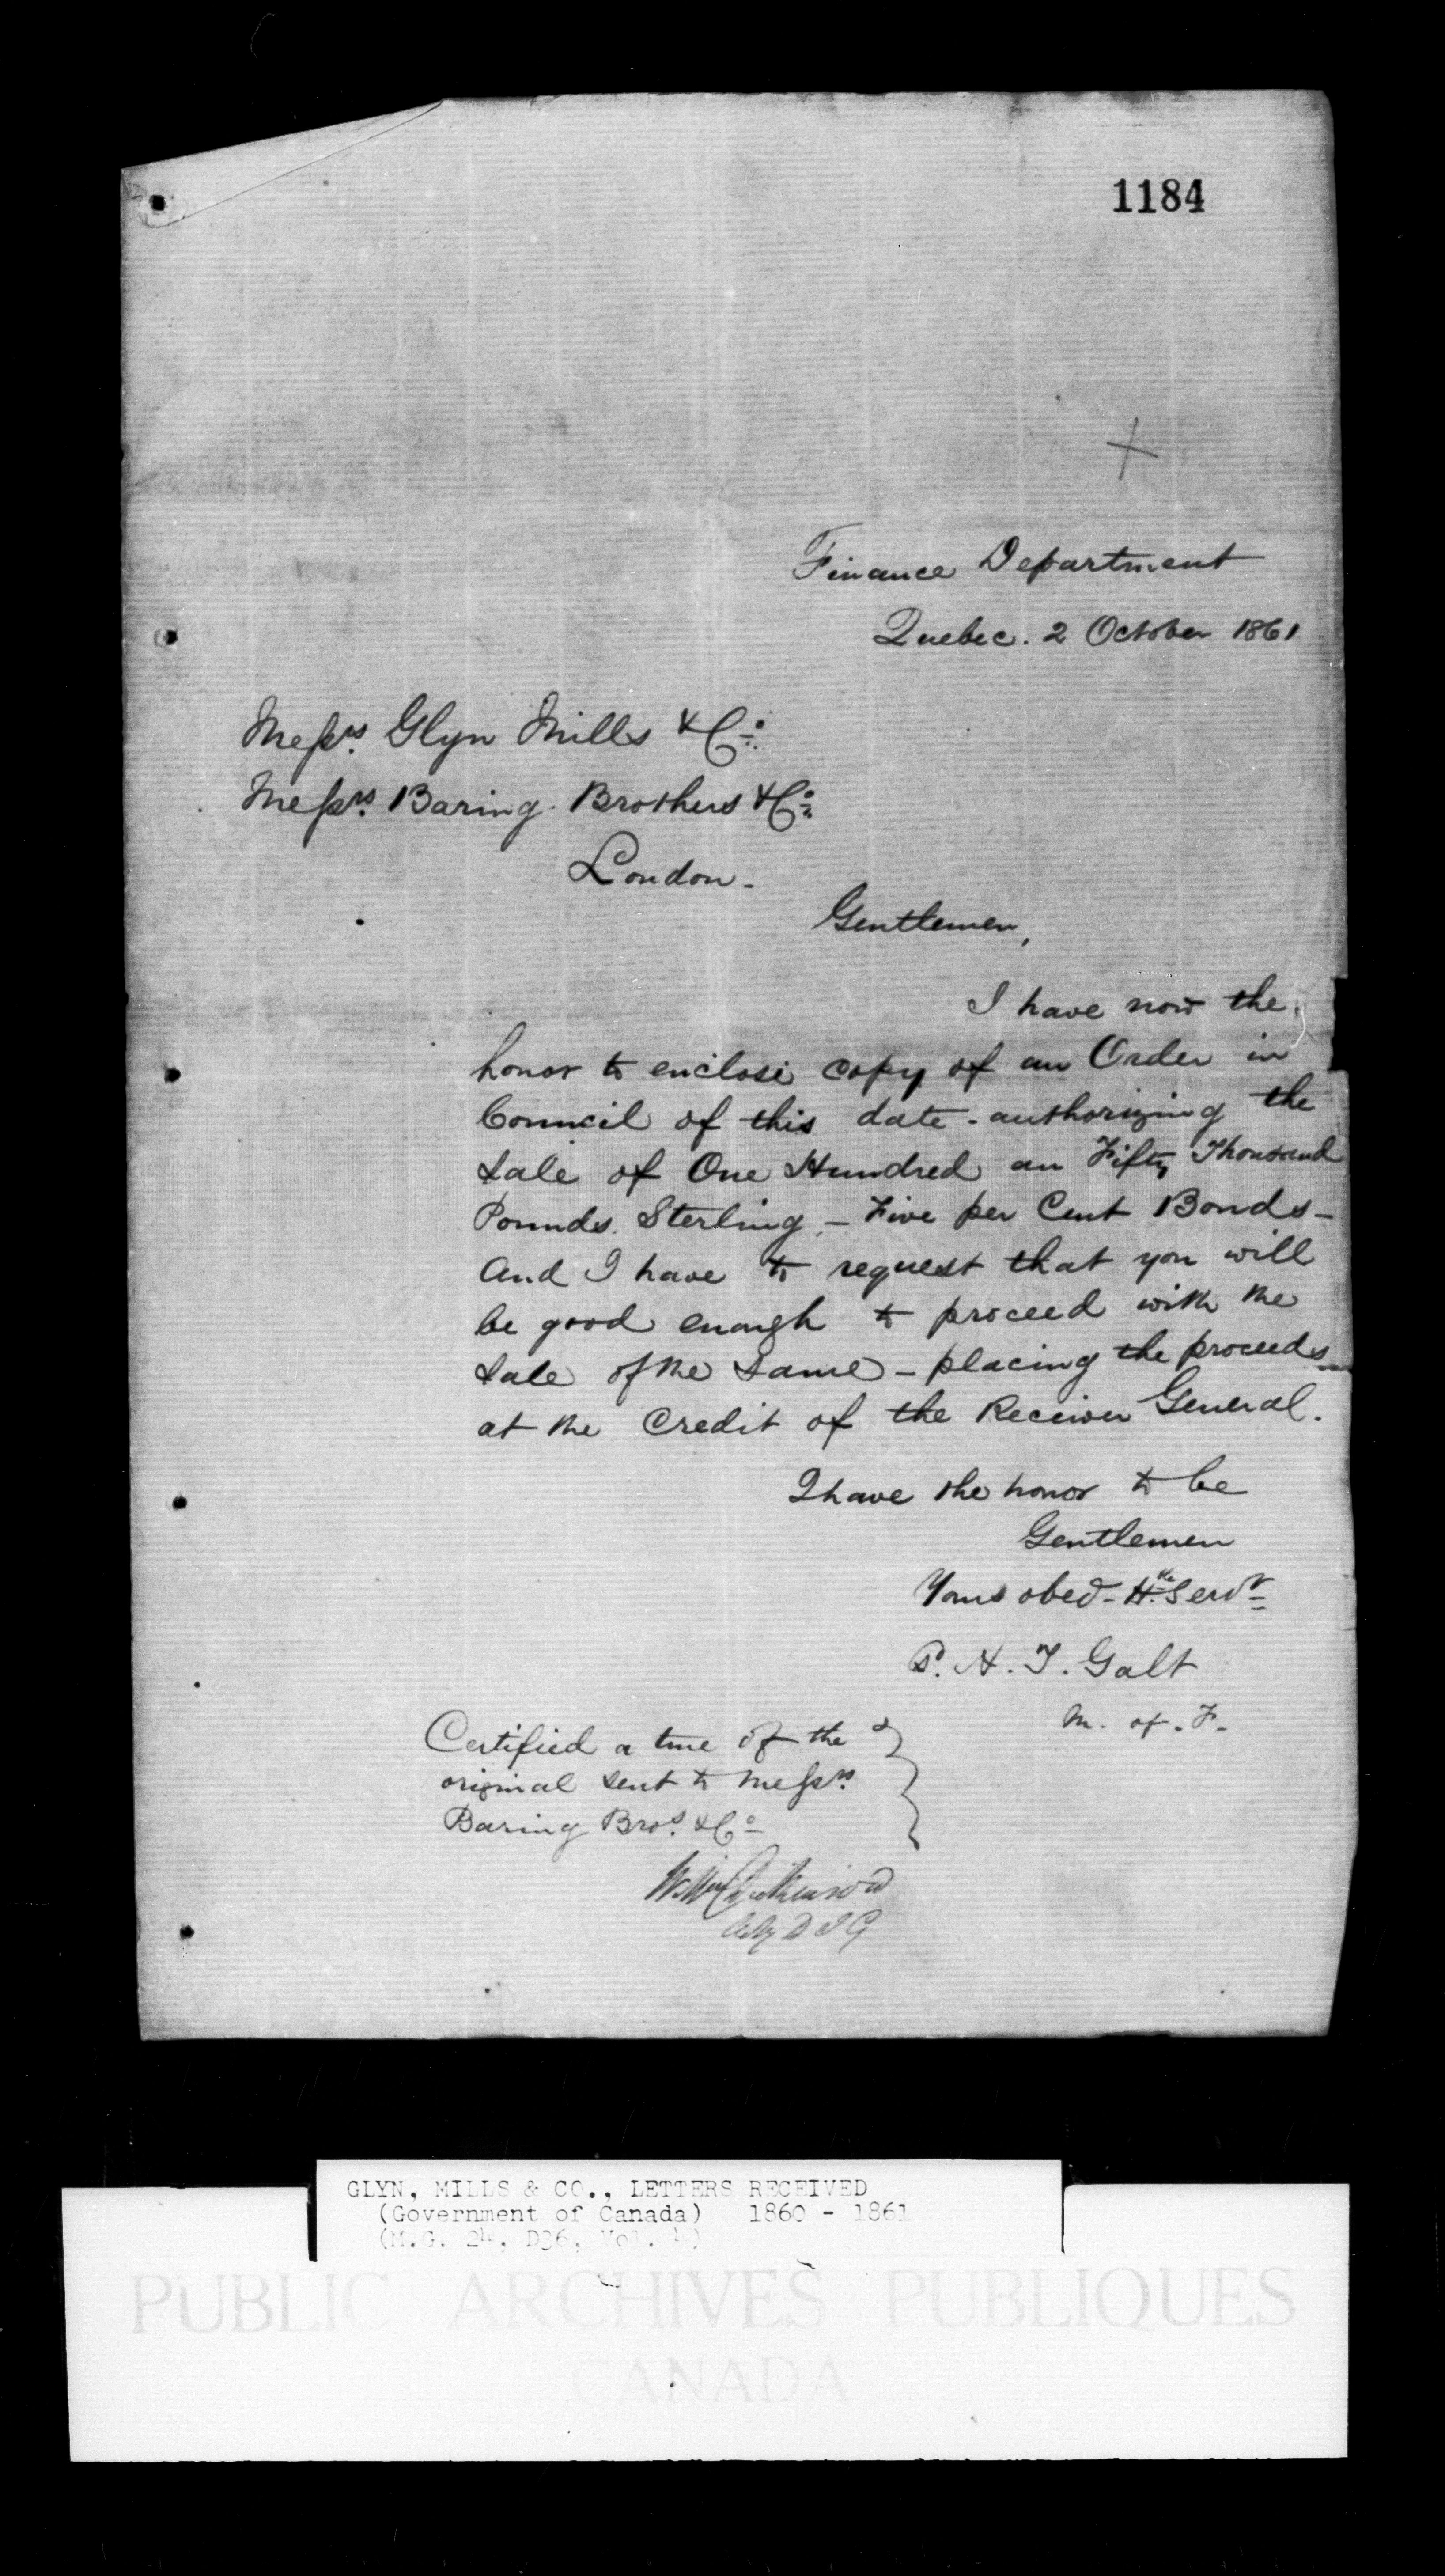 1184
Finance Department
Quebec. 2 October 1861
Messrs. Glyn Mills & Co.
Messrs. Baring Brothers & Co.
London.
Gentlemen,
I have now the
honor to enclose copy of an Order in
Council of this date - authorizing the
Sale of One Hundred an Fifty Thousand
Pounds Sterling - Five per Cent Bonds -
And I have to request that you will
be good enough to proceed with the
Sale of the Same - placing the proceeds
at the Credit of the Receiver General.
I have the honor to be
Gentlemen
Yours obed. Hble Servt
A. T. Galt
M. of. F.
Certified a true of the
original sent to Messrs.
Baring Bros. & Co
GLYN, MILLS & CO., LETTERS RECEIVED
(Government of Canada) 1860 - 1861
(M.G. 24, D36, Vol. 4)
PUBLIC ARCHIVES PUBLIQUES
CANADA